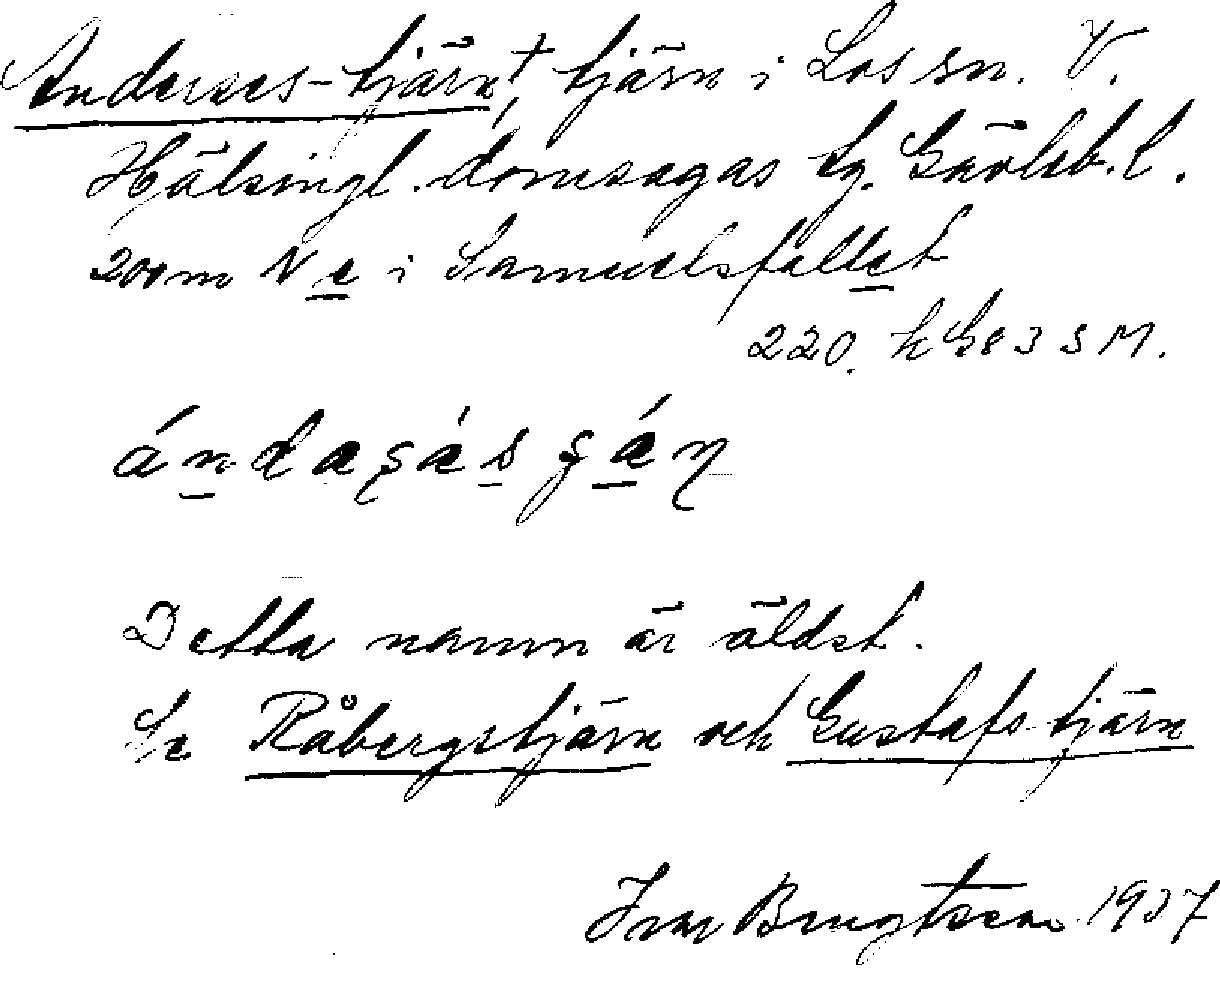 Anderses-tjärn†, tjärn i Los sn. V.
Hälsingl. domsagas tg. Gävleb. l.
200 m N e i Samuelsfallet
220. h G 8 3 S M.
Detta namn är äldst.
Se Råbergstjärn och Gustafs tjärn
Bengtsson 1937